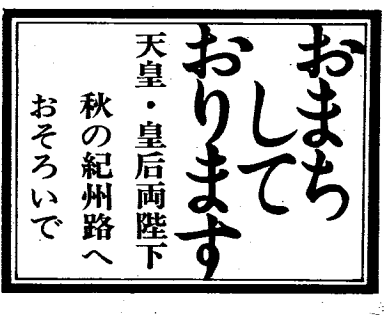 おまち
して
おります
天皇・皇后両陛下
秋の紀州路へ
おそろいで